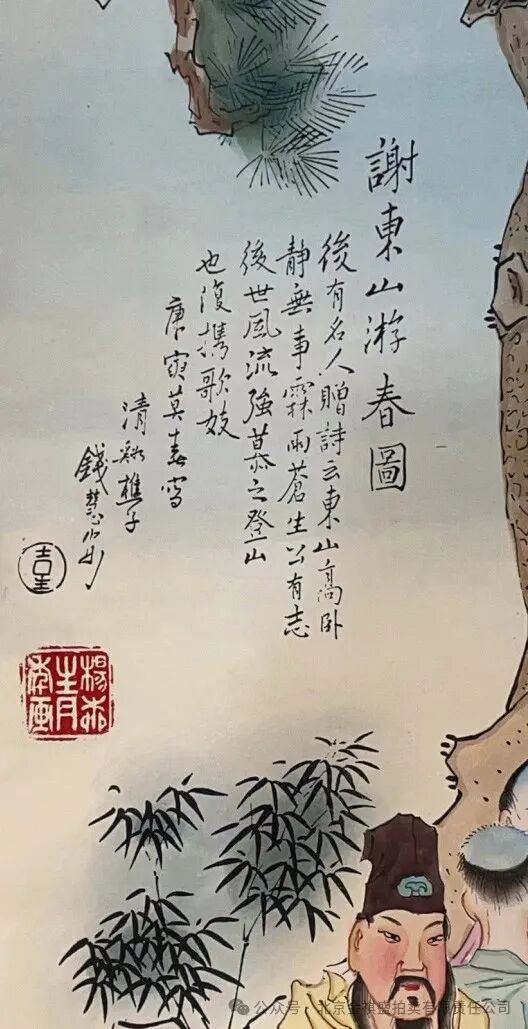 謝東山游春圖
後有名人贈詩云東山高卧
靜無事霖雨蒼生公有志
後世風流強慕之登山
也復携歌妓
庚寅莫春寫
清谿樵子
錢慧安
楊柳青年画
公众号 · 北京金祺盛拍卖有限责任公司